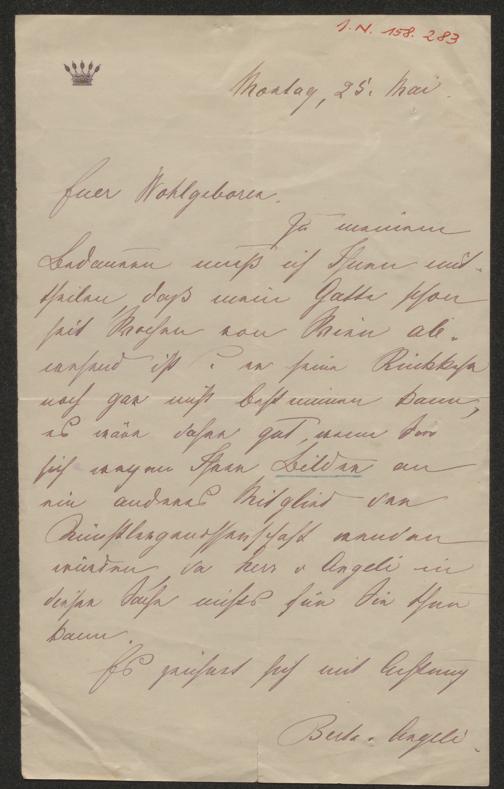 I. N. 158. 283
Montag, 25. Mai.
Euer Wohlgeboren.
Zu meinem
Bedauern muß ich Ihnen mit-
theilen, daß mein Gatte schon
seit Wochen von Wien ab-
wesend ist u. er seine Rückkehr
noch gar nicht bestimmen kann,
es wäre daher gut, wenn Sie
sich wegen Ihrer Bilder an
ein anderes Mitglied der
Künstlergenossenschaft wenden
würden da Herr v Angeli in
dieser Sache nichts für Sie thun
kann.
Es zeichnet sich mit Achtung
Berta v. Angeli.